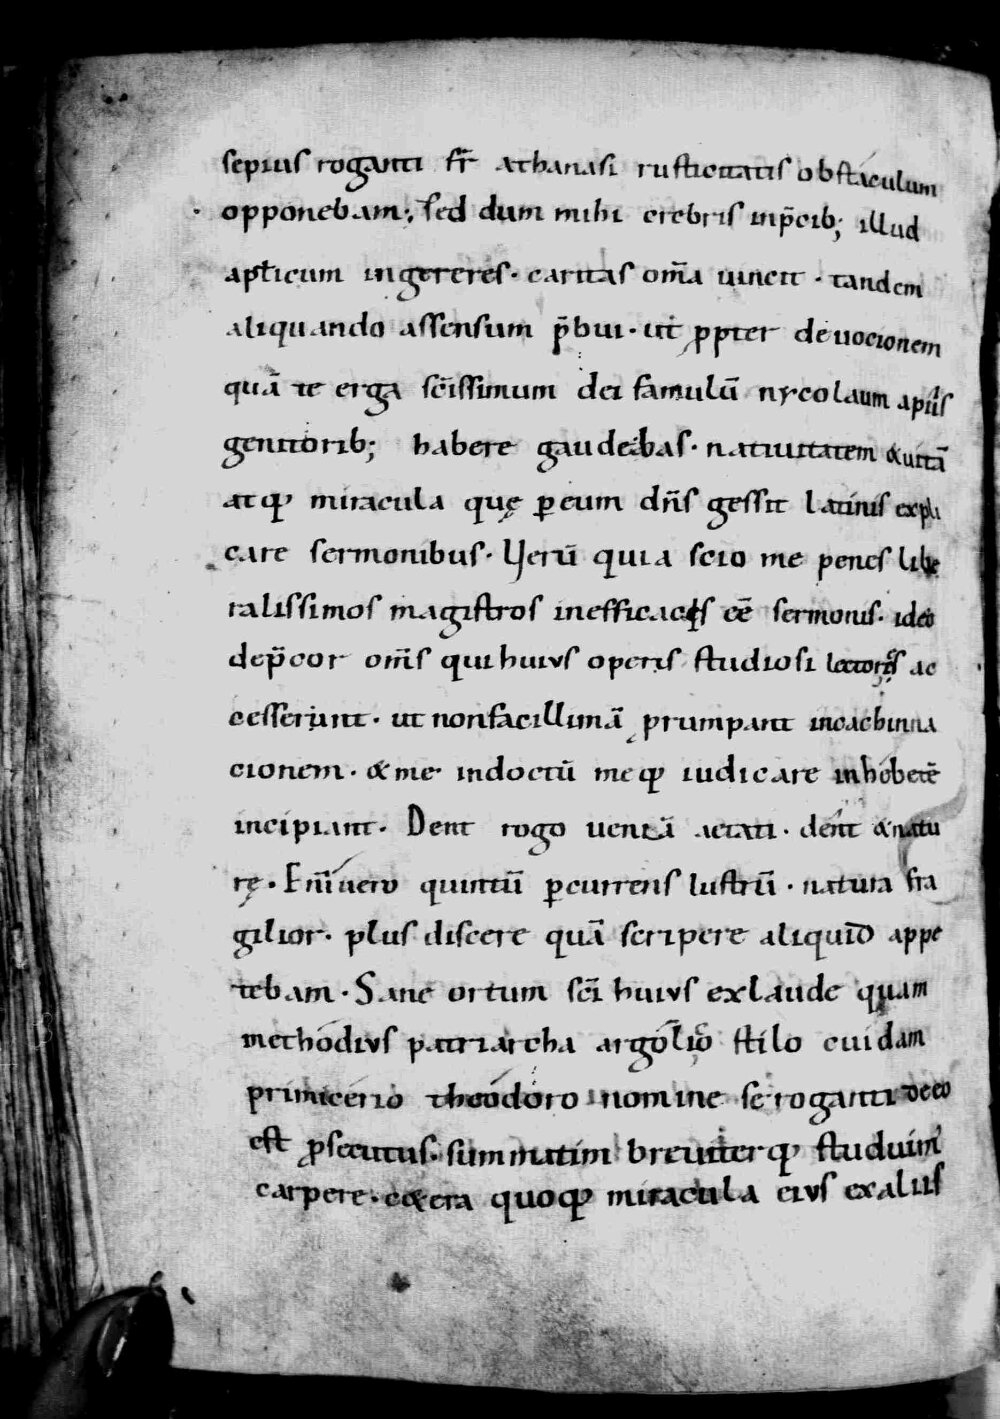 sepius roganti fr̄ athanasi rusticitatis obstaculum
opponebam·, sed dum mihi crebris inp̄cib; illud
apl̄icum ingereres· caritas om̄a uincit · tandem
aliquando assensum p̄bui· ut ꝓpter deuocionem
quā te erga sc̄issimum dei famulū nycolaum a
genitorib; habere gaudebas· natiuitatem & uitā
atq; miracula quę ꝑ eum dn̄s gessit latinis expli
care sermonibus· Verū quia scio me penes libe
ralissimos magistros inefficacis eē sermonis· ideo
dep̄cor om̄s qui huius operis studiosi lectores ac
cesserint· ut non facillimā prumpant in cachinna
cionem· & me indoctū meq; iudicare inhobetē
incipiant· Dent rogo ueniā aetati· dent & natu
rę· Enī uero quintū ꝑcurrens lustrū· natura fra
gilior· plus discere quā scripere aliquid appe
tebam· Sane ortum sc̄i huius ex laude quam
methodius patriarcha argolico stilo cuidam
primicerio theodoro nomine se roganti de eo
est ꝓsecutus· summatim breuiterq; studuim᾽
carpere· c&era quoq; miracula eius ex aliis